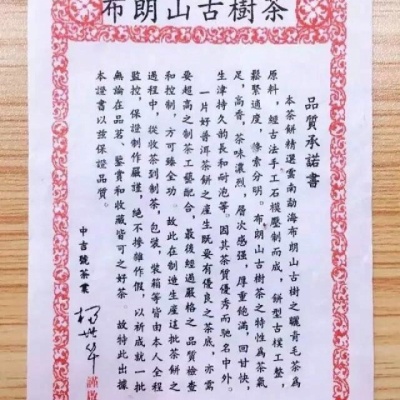 布朗山古樹茶
品質承諾書
本茶餅精選雲南勐海布朗山古樹之曬青毛茶爲
原料，經古法手工石模壓制而成，餅型古樸工整，
鬆緊適度，條索分明。布朗山古樹茶之特性爲茶氣
足，高香，茶味濃烈，層次感强，厚重飽滿，回甘快，
生津持久韵長和耐泡等。因其茶質優秀而馳名中外。
一片好普洱茶餅之産生既要有優良之茶底，亦需
要超高之制茶工藝配合，最後經過嚴格之品質檢查
和控制，方可臻全功。故此在制造生産這批茶餅之
過程中，從收茶到制茶，包裝，裝箱等皆由本人全程
監控，保證制作嚴謹，絕不摻雜作假，以祈成就一批
無論在品茗、鑒賞和收藏皆可之好茶 故特此出據
本證書以兹保證品質。
中吉號茶業
謹啟